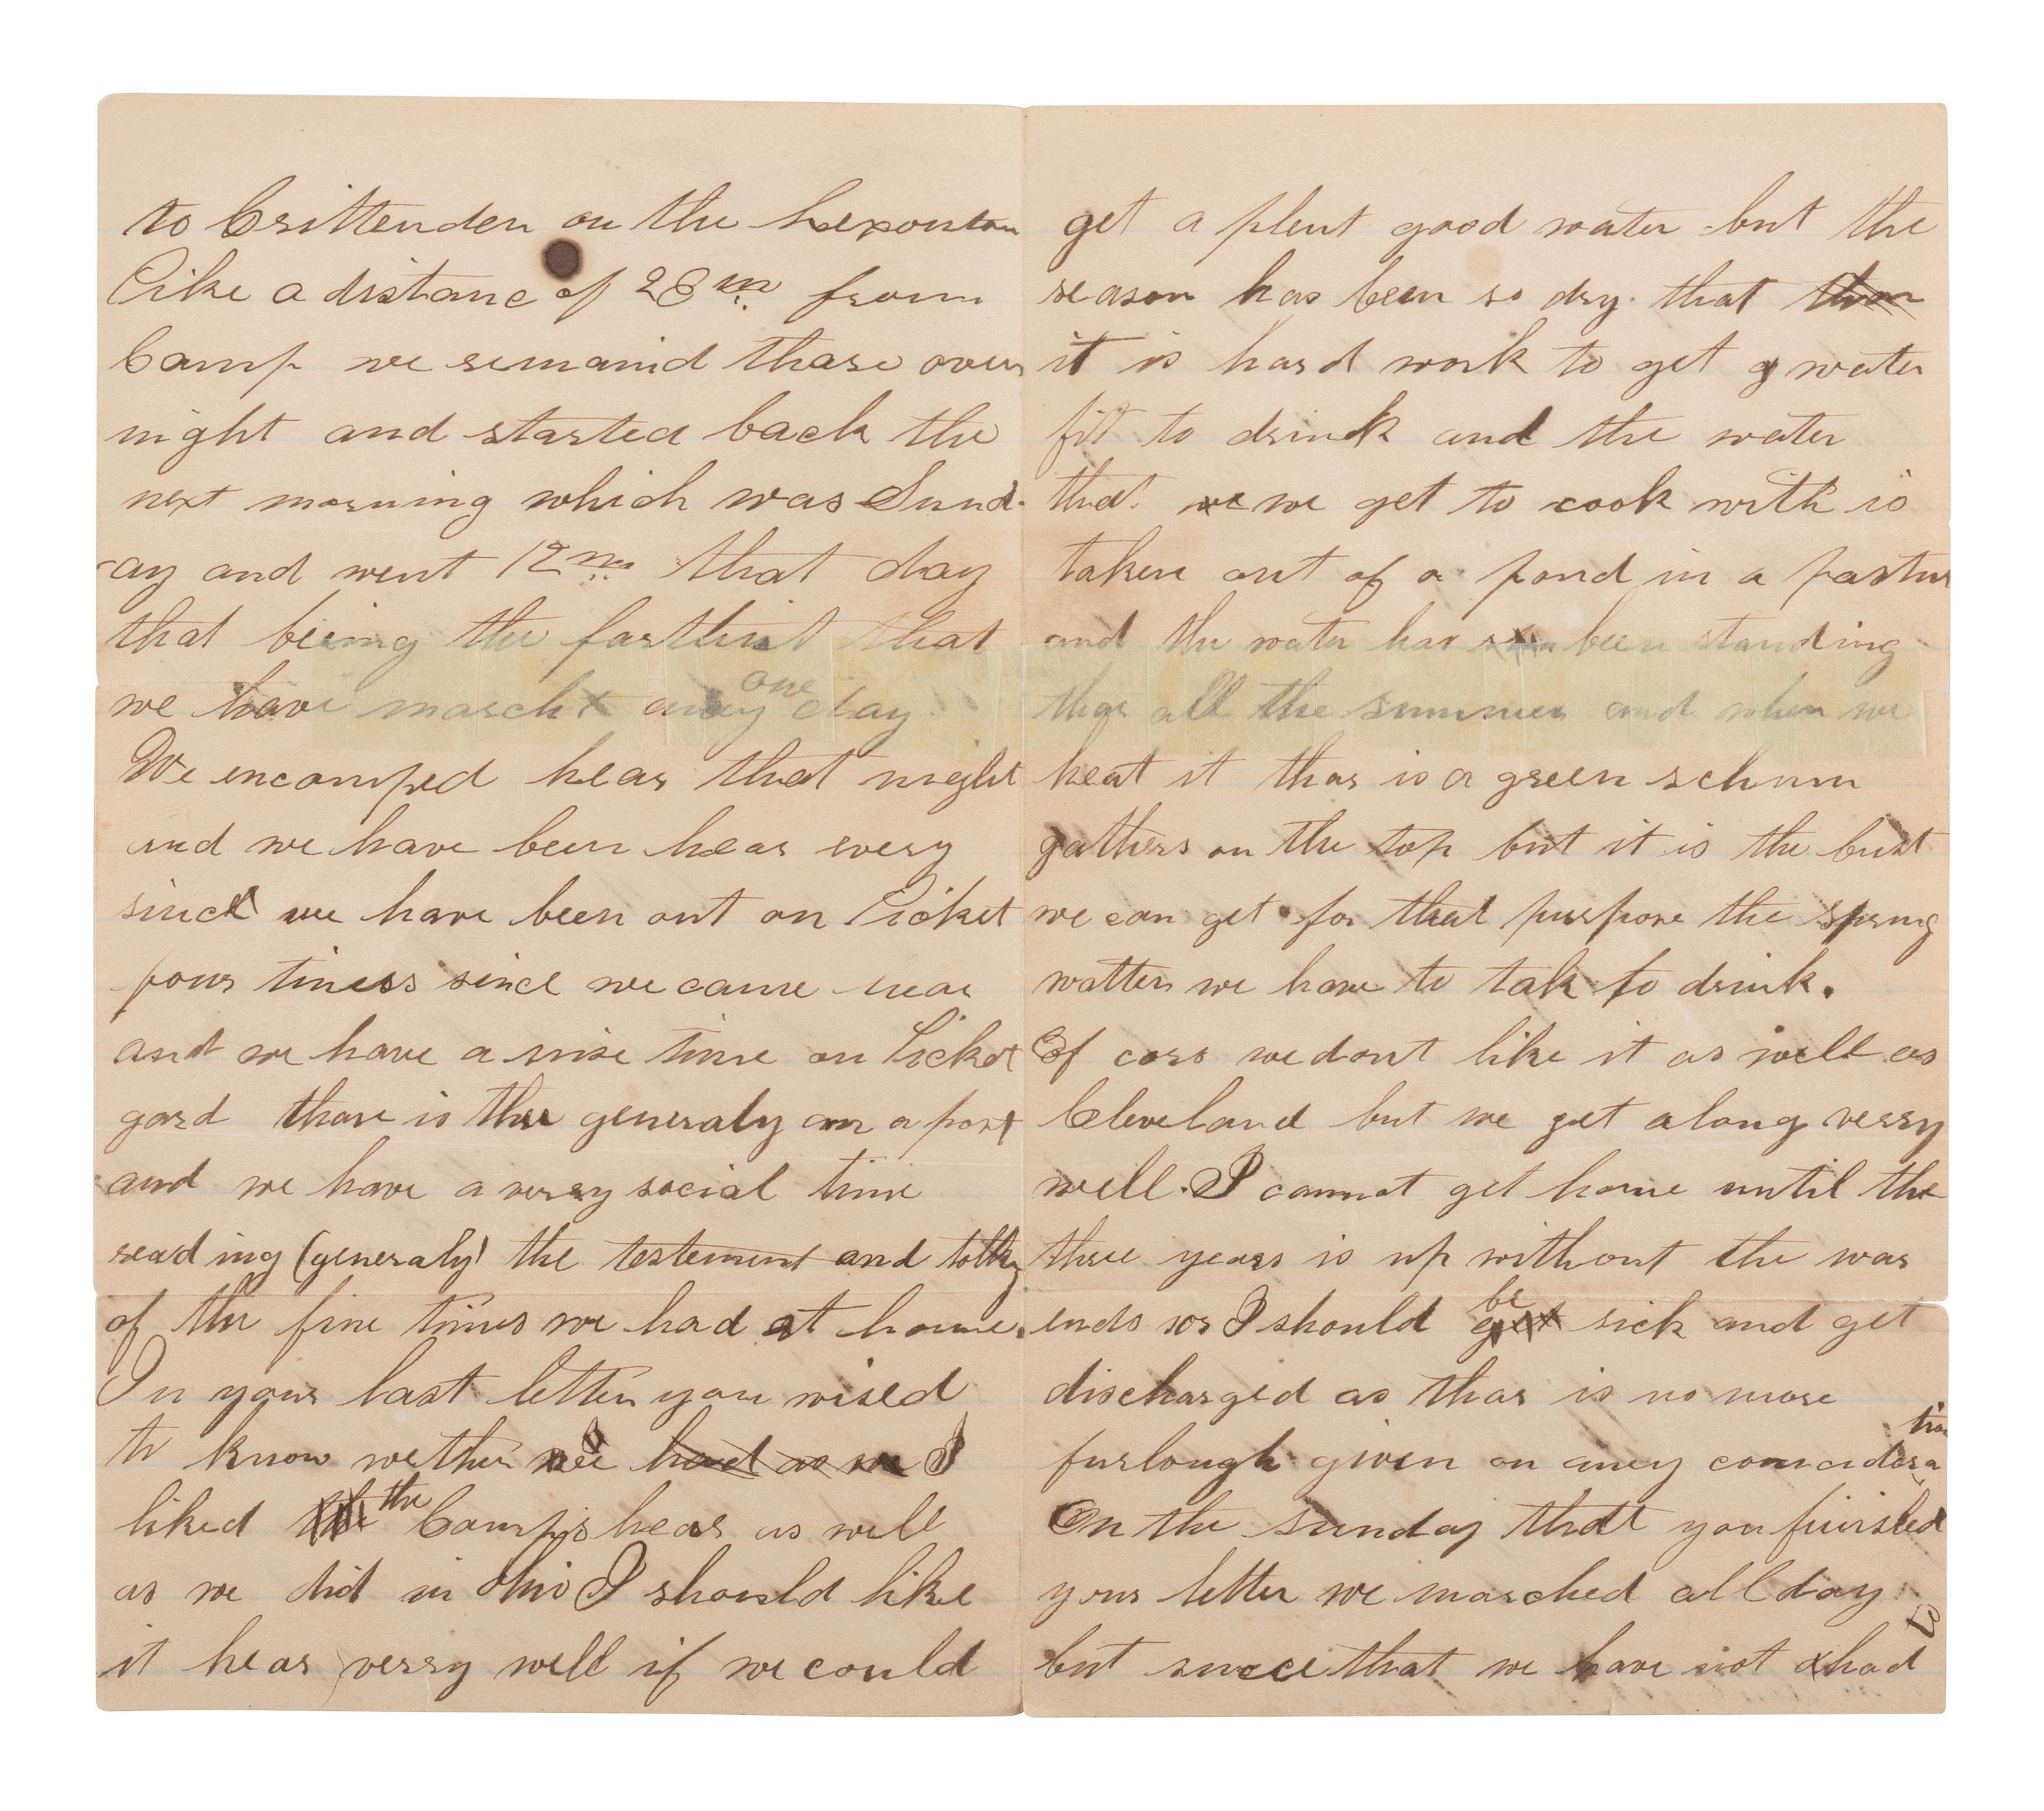 to Crittenden on the Lexonton
Pike a distanc of 28 m. from
Camp we remaind thare over
night and started back the
next morning which was Sund-
-ay and went 12 m. that day
that being the farthist that
we have march any one day
We encamped hear that night
and we have been hear every
since we have been out on Picket
four timess since we came hear
and we have a nise time on Picket
gard thare is three generaly on a post
and we have a verry social time
reading (generaly) the testement and talking
of the fine times we had at home.
In your last letter you wised
to know wether I had as we I
liked the Camps hear as well
as we did in Ohio I should like
it hear verry well if we could
get a plent good water but the
season has been so dry that
it is hard work to get water
fit to drink and the water
that we we get to cook with is
taken out of a pond in a pastur
and the water has been standing
thar all the summer and when we
heat it thar is a green schum
gathers on the top but it is the best
we can get for that purpose the spring
watter we have to tak to drink.
Of cors we dont like it as well as
Cleveland but we get along verry
well. I cannot get home until the
three years is up without the war
ends or I should be sick and get
discharged as thar is no more
furlough given on aney consideration
On the sunday that you finished
your letter we marched all day
but since that we have not had to